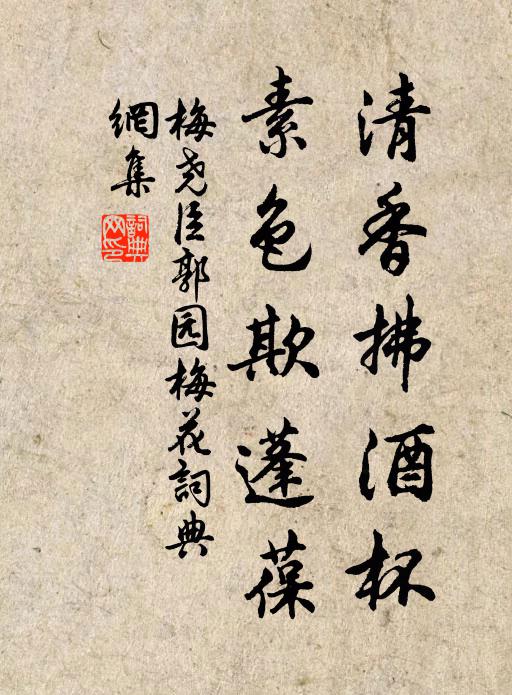 清香拂酒杯
素色欺蓬葆
梅尧臣郭园梅花詞典
網集
詞典
网印